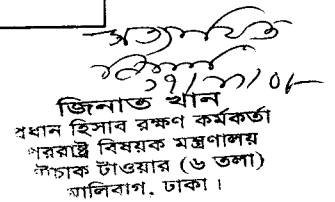 সত্যায়িত
জিনাত খান
প্রধান হিসাব রক্ষণ কর্মকর্তা
পররাষ্ট্র বিষয়ক মন্ত্রণালয়
টাওয়ার (৬ তলা)
মালিবাগ, ঢাকা।